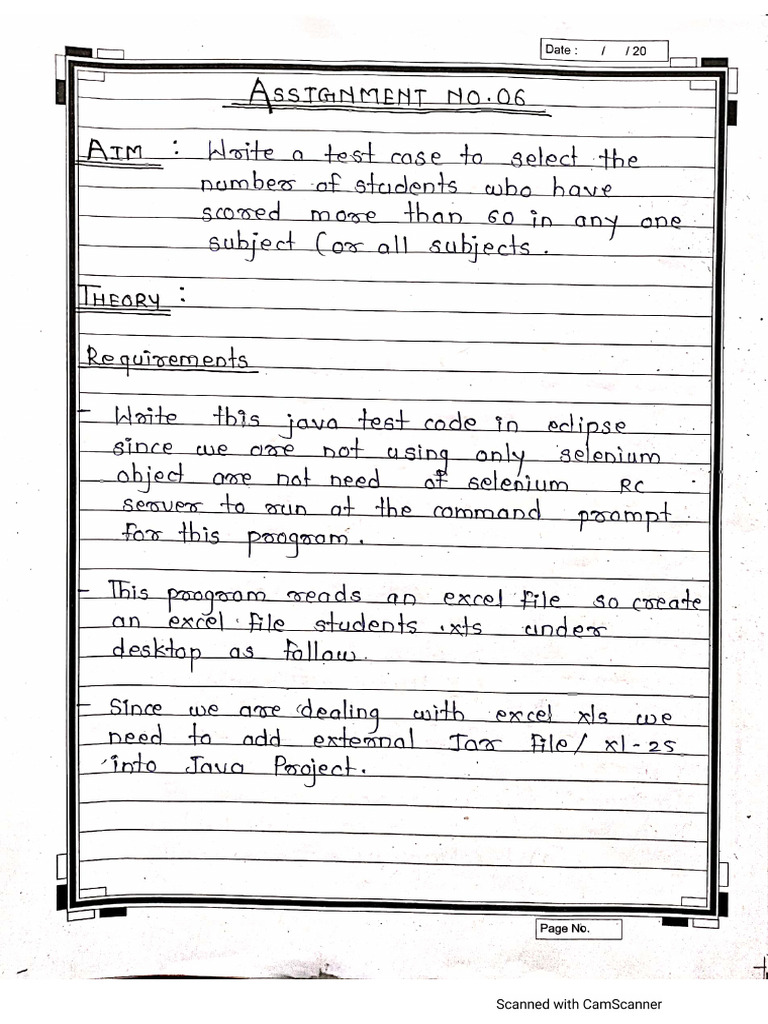 Date : / / 20
ASSIGNMENT NO.06
AIM : Write a test case to select the
number of students who have
scored more than 60 in any one
subject (or all subjects.
THEORY :
Requirements
- Write this java test code in eclipse
since we are not using only selenium
object are not need of selenium RC
server to run at the command prompt
for this program.
- This program reads an excel file so create
an excel file students .xts under
desktop as follow.
- Since we are dealing with excel xls we
need to add external Jar File/ xl-25
into Java Project.
Page No.
Scanned with CamScanner